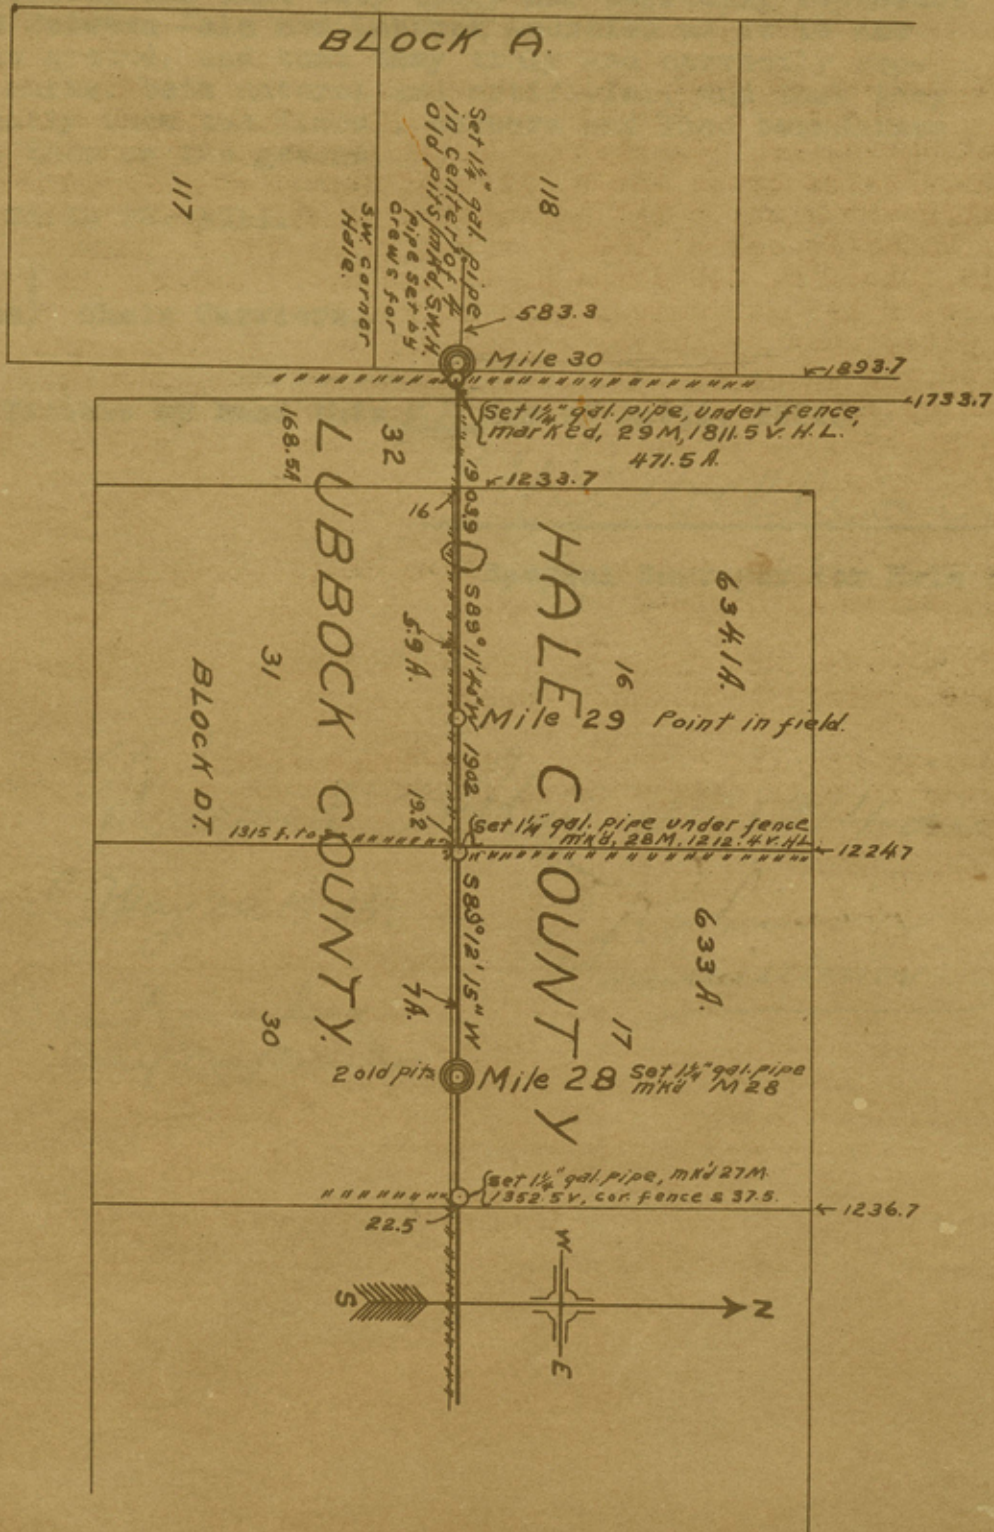 BLOCK A.
117
118
Set 1¼" gal. pipe
in center of 4
old pits, mkd, S.W.H.
pipe set by
crews for
S.W. corner
Hale.
583.3
Mile 30
1893.7
1733.7
Set 1¼" gal. pipe, under fence,
marked, 29M, 1811.5 v. H.L.
471.5 A.
168.5A
32
1903.9
1233.7
16
LUBBOCK COUNTY.
HALE COUNTY
634.1A.
16
5.9 A.
S89° 11' 45" W
31
BLOCK DT.
Mile 29 Point in field.
1902
19.2
1315 f. to
Set 1¼" gal. pipe under fence
mkd, 28M. 1212.4 v. HL
1224.7
S89° 12' 15" W
633 A.
7A.
17
30
2 old pits
Mile 28
Set 1¼" gal. pipe
mkd M 28
set 1¼" gal. pipe, mkd 27M.
1352.5 v, cor. fence s 37.5.
22.5
1236.7
W
S
N
E